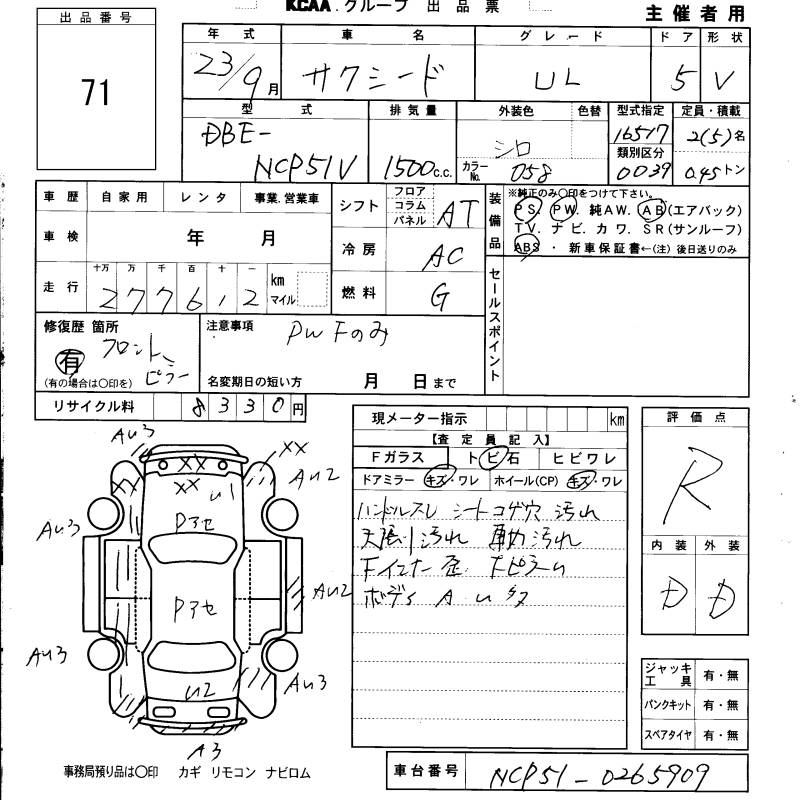 KCAA.グループ 出品票
主催者用
出品番号
71
年式 車名 グレード ドア 形状
23/9月 サクシード UL 5 V
型式 排気量 外装色 色替 型式指定 定員・積載
DBE-
NCP51V 1500c.c. シロ カラーNo. 058 16517 2(5)名
類別区分
0039 0.45トン
車歴 自家用 レンタ 事業.営業車
車検 年 月
走行 十万 万 千 百 十 一
277612 km マイル
シフト フロア コラム パネル AT
冷房 AC
燃料 G
装備品
※純正のみ〇印をつけて下さい。
PS. PW. 純AW. AB(エアバック)
TV. ナビ. カワ. SR(サンルーフ)
ABS ・ 新車保証書←(注) 後日送りのみ
セールスポイント
修復歴 箇所
有 フロント
ピラー
(有の場合は〇印を)
注意事項 PW Fのみ
名変期日の短い方 月 日まで
リサイクル料 8330円
現メーター指示 km
【査定員記入】
Fガラス トビ石 ヒビワレ
ドアミラー キズ・ワレ ホイール(CP) キズ・ワレ
ハンドルスレ シートコゲ穴 汚れ
天張り汚れ 汚れ
Fインナー歪 Fピラーu
ボディ A u
評価点
R
内装 外装
D D
ジャッキ 工具 有・無
パンクキット 有・無
スペアタイヤ 有・無
AU3 XX
XX XX AU2
U1
Pアセ
AU3
AU2
Pアセ
AU3 AU3
U2
A3
事務局預り品は〇印 カギ リモコン ナビロム
車台番号 NCP51-0265909